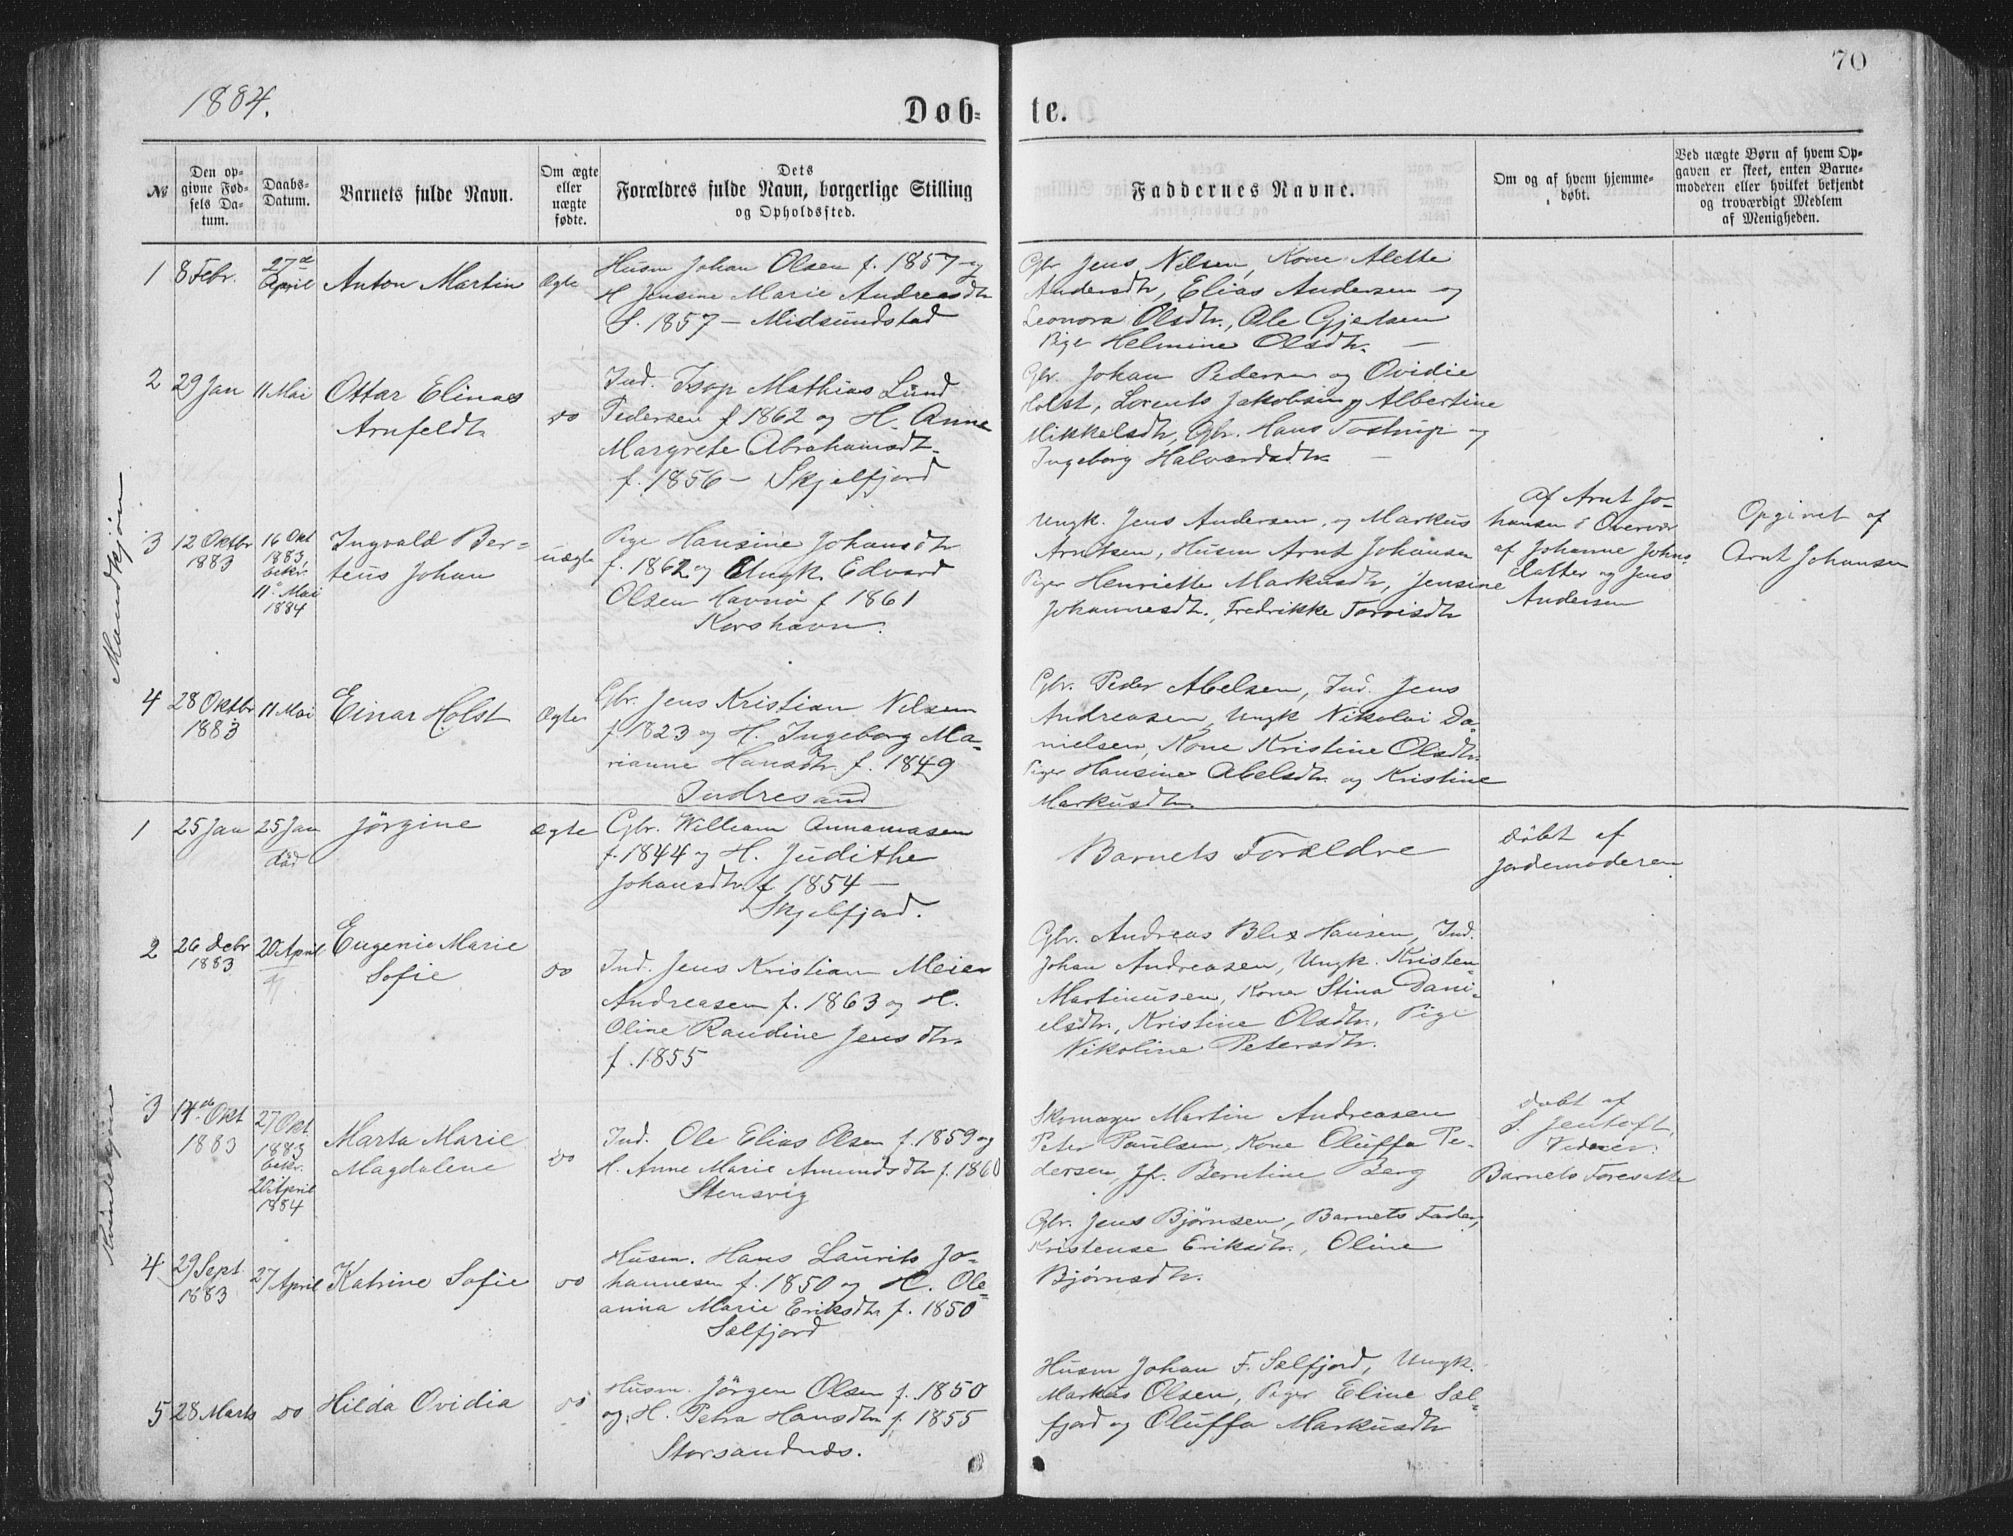 70
1884.
Døb-
te.
№
Den op-
givne Fød-
sels Da-
tum.
Daabs-
Datum.
Barnets fulde Navn.
Om ægte
eller
uægte
fødte.
Dets
Forældres fulde Navn, borgerlige Stilling
og Opholdssted.
Faddernes Navne.
Om og af hvem hjemme-
døbt.
Ved uægte Børn af hvem Op-
gaven er skeet, enten Barne-
moderen eller hvilket bekjendt
og troværdigt Medlem
af Menigheden.
Mandkjøn
1
8 Febr.
27de
April
Anton Martin
Ægte
Husm Johan Olsen f. 1857 og
H. Jensine Marie Andreasdtr
f. 1857 - Midsundstad
Gbr. Jens Nilsen, Kone Alette
Andersdtr, Elias Andersen og
Leonora Olsdtr., Ole Gjetsen
Pige Helmine Olsdtr. —
2
29 Jan
11 Mai
Ottar Elinas
Arnfeldt
do
Ind. Isop Mathias Lund
Pedersen f 1862 og H. Anne
Margrete Abrahamsdt.
f. 1856 - Skjelfjord
Gbr. Johan Pedersen og Ovidie
Holst, Lorents Jakobsen og Albertine
Mikkelsdtr, Gbr. Hans Tostrup og
Ingeborg Halvardsdtr. —
3
12 Oktbr
1883
16 Okt
1883,
bekr.
11 Mai
1884
Ingvald Ber-
teus Johan
uægte
Pige Hansine Johansdtr
f. 1862 og Ungk. Edvard
Olsen Havnø f 1861
Korshavn.
Ungk. Jens Andersen, og Markus
Arntsen, Husm Arnt Johansen
Piger Henriette Markusdtr, Jensine
Johannesdt., Fredrikke Torrisdtr
af Arnt Jo-
hansen i Overvær
af Johanne Johns
datter og Jens
Andersen
Opgivet af
Arnt Johansen
4
28 Oktbr
1883
11 Mai
Einar Holst
Ægte
Gbr. Jens Kristian Nilsen
f 1823 og H. Ingeborg Ma-
rianne Hansdtr. f. 1849
Indresand
Gbr. Peder Abelsen, Ind. Jens
Andreasen, Ungk Nikolai Da-
nielsen, Kone Kristine Olsdtr.
Piger Hansine Abelsdtr og Kristine
Markusdtr.
Kvindekjøn
1
25 Jan
25 Jan
død
Jörgine
ægte
Gbr. William Annanasen
f. 1844 og H. Judithe
Johansdtr. f 1854 —
Skjelfjord.
Barnets Forældre
døbt af
Jordemoderen
2
26 Debr
1883
20 April
Eugenie Marie
Sofie
do
Ind. Jens Kristian Meier
Andreasen f. 1863 og H.
Oline Randine Jensdtr.
f. 1855
Gbr. Andreas Blix Hansen, Ind.
Johan Andreasen, Ungk. Kristen
Martinusen, Koner Stina Dani-
elsdtr., Kristine Olsdtr., Pige
Nikoline Petersdtr.
3
14de Okt
1883
27 Okt
1883
bekr.
20 April
1884
Marta Marie
Magdalene
do
Ind. Ole Elias Olsen f. 1859 og
H. Anne Marie Amundsdtr f. 1860
Stensvig
Skomager Martin Andreasen
Peter Paulsen, Kone Oluffa Pe-
dersen, Jfr. Berntine Berg
døbt af
S. Jentoft.
Barnets Foresatte
4
29 Sept
1883
27 April
Katrine Sofie
do
Husm. Hans Laurits Jo-
hannesen f. 1850 og H. Ole-
anna Marie Eriksdtr f. 1850
Sælfjord
Gbr. Jens Bjørnsen, Barnets Fader,
Kristense Eriksdtr., Oline
Bjørnsdtr.
5
28 Marts
do
Hilda Ovidia
do
Husm. Jörgen Olsen f. 1850
og H. Petra Hansdtr f. 1855
Storsandnæs.
Husm Johan F. Sælfjord, Ungk.
Markus Olsen, Piger Eline Sæl-
fjord og Oluffa Markusdtr